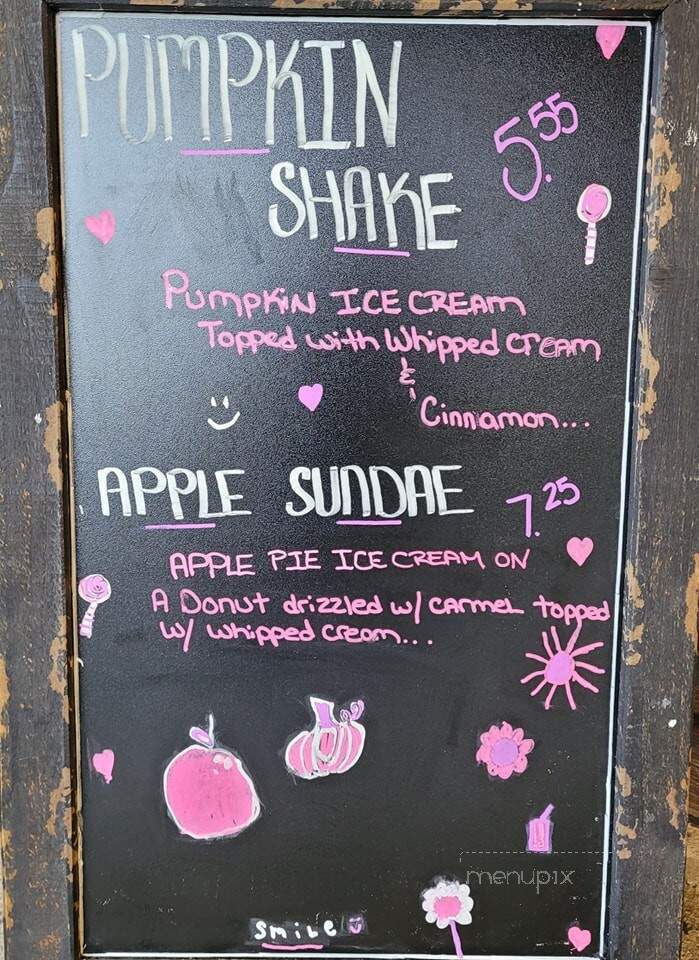 PUMPKIN
5.55
SHAKE
PUMPKIN ICE CREAM
Topped with Whipped Cream
&
Cinnamon...
APPLE SUNDAE 7.25
APPLE PIE ICE CREAM ON
A Donut drizzled w/ carmel topped
w/ whipped cream...
menupix
smile